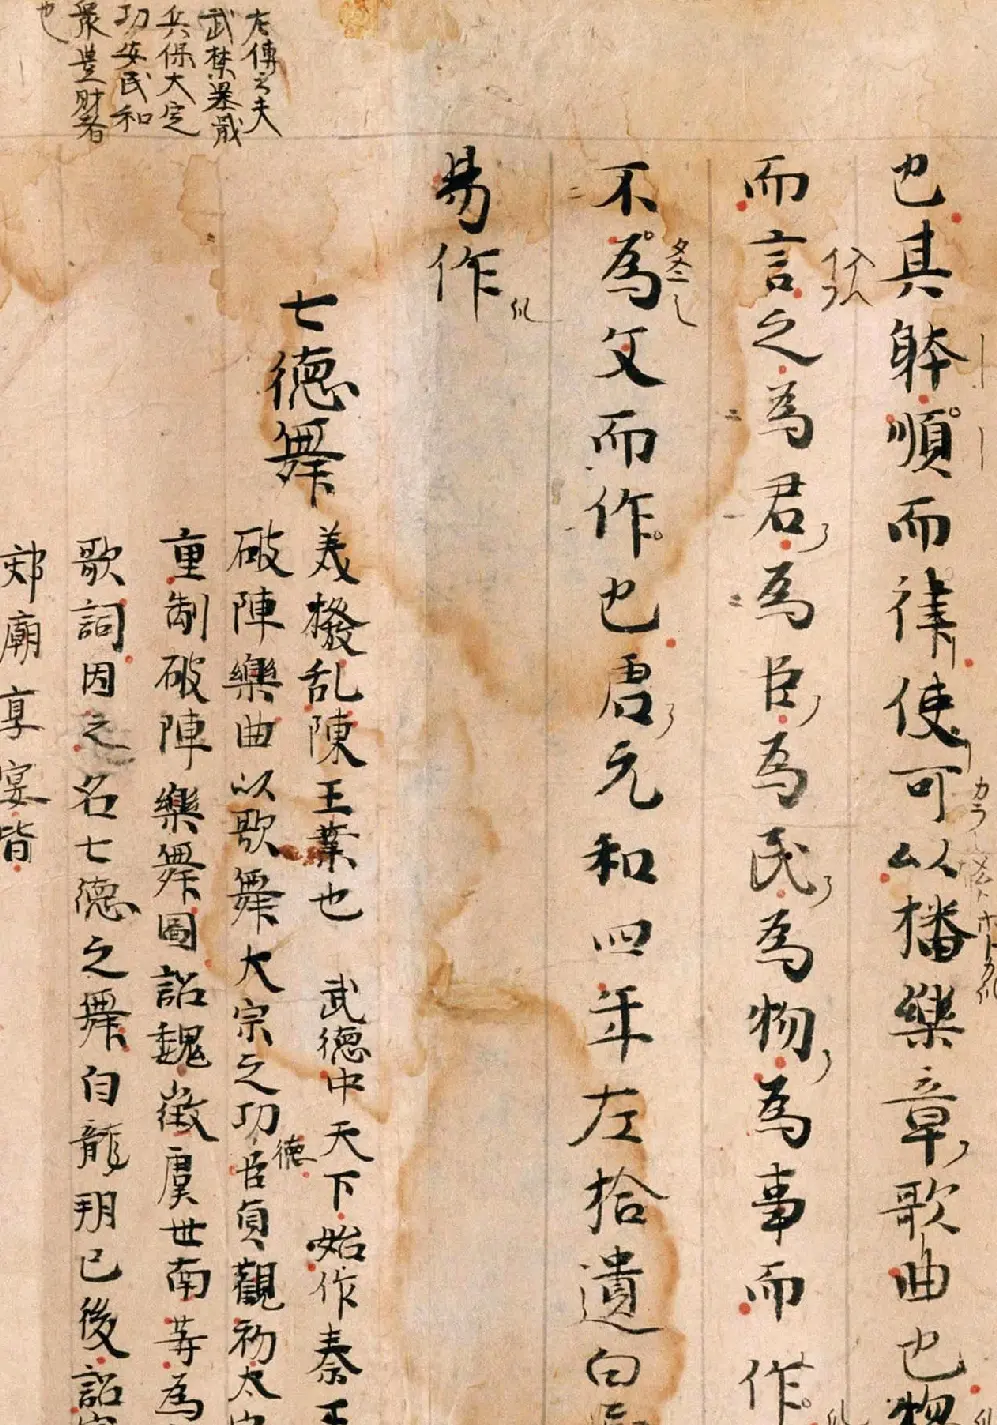 也其躰順而律使可以播樂章歌曲也
而言之為君為臣為民為物為事而作
不為文而作也唐元和四年左拾遺白
易作
七德舞
美撥乱陳王業也 武德中天下始作秦王
破陣樂曲以歌舞大宗之功臣貞觀初太宗
德
重制破陣樂舞圖詔魏徴虞世南等為
歌詞因之名七德之舞自龍朔已後詔
郊廟享宴皆
左傳云夫
武禁暴戢
兵保大定
功安民和
衆豊財者
也